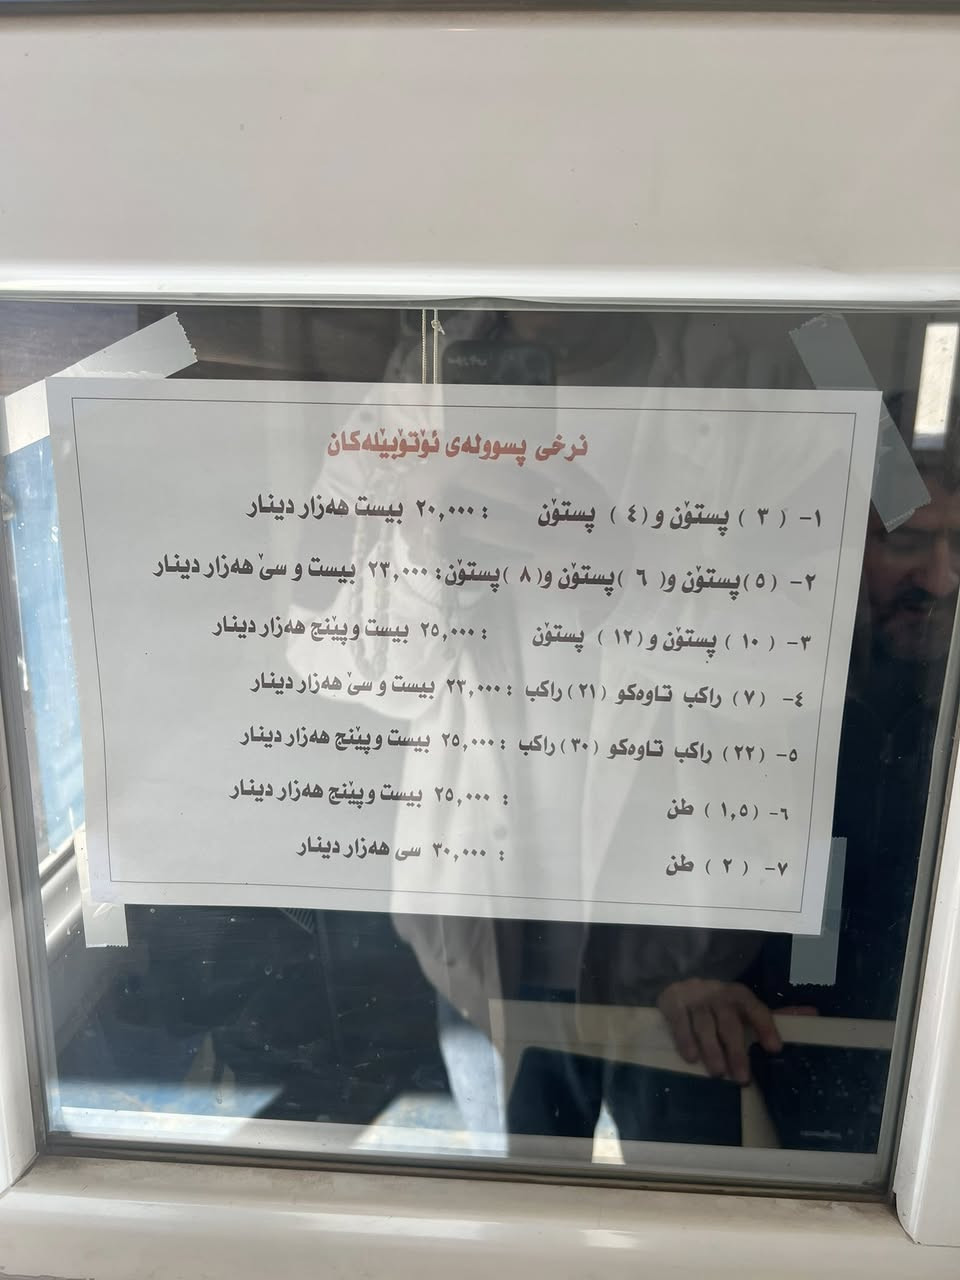 نرخی پسوولەی ئۆتۆبێلەکان
١- ( ٣ ) پستۆن و ( ٤ ) پستۆن : ٢٠,٠٠٠ بیست هەزار دینار
٢- (٥) پستۆن و( ٦ )پستۆن و( ٨ )پستۆن: ٢٣,٠٠٠ بیست و سێ هەزار دینار
٣- ( ١٠ ) پستۆن و ( ١٢ ) پستۆن : ٢٥,٠٠٠ بیست و پێنج هەزار دینار
٤- (٧) راکب تاوەکو (٢١) راکب : ٢٣,٠٠٠ بیست و سێ هەزار دینار
٥- (٢٢) راکب تاوەکو (٣٠) راکب : ٢٥,٠٠٠ بیست و پێنج هەزار دینار
٦- (١,٥) طن : ٢٥,٠٠٠ بیست و پێنج هەزار دینار
٧- ( ٢ ) طن : ٣٠,٠٠٠ سی هەزار دینار